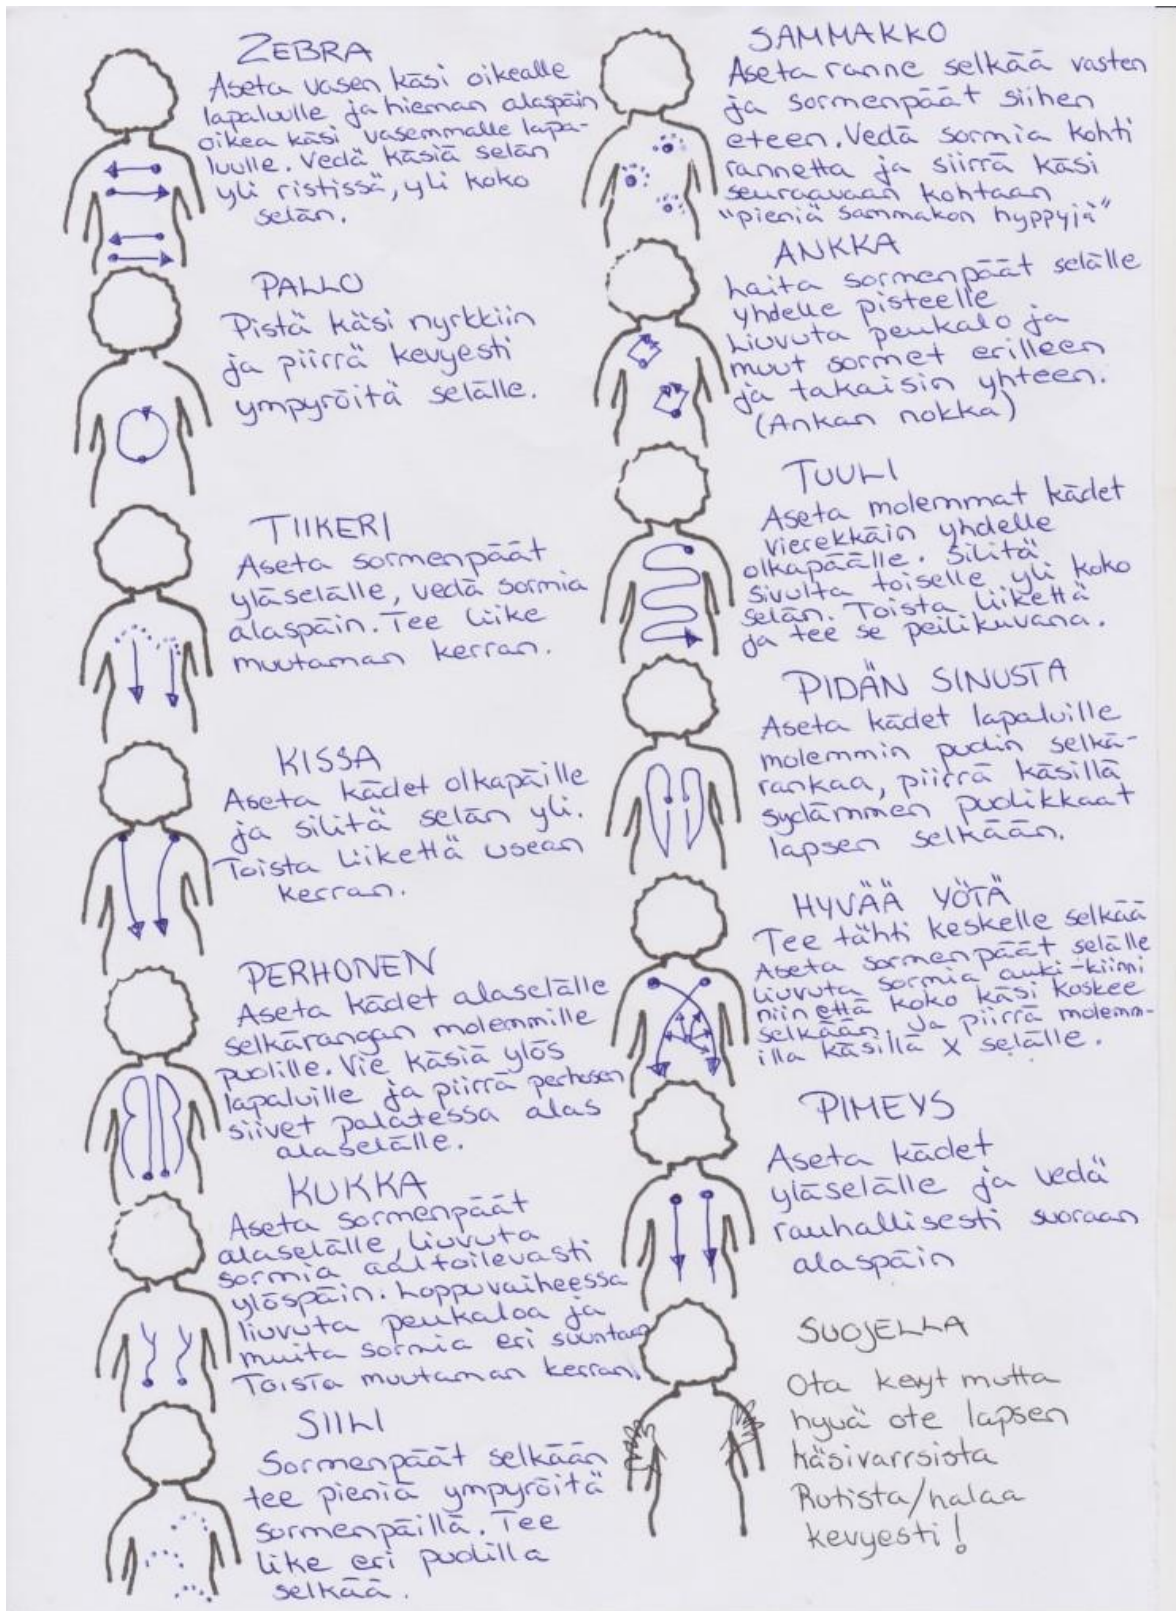 ZEBRA
Aseta vasen käsi oikealle
lapaluulle ja hieman alaspäin
oikea käsi vasemmalle lapa-
luulle. Vedä käsiä selän
yli ristissä, yli koko
selän.
PALLO
Pistä käsi nyrkkiin
ja piirrä kevyesti
ympyröitä selälle.
TIIKERI
Aseta sormenpäät
yläselälle, vedä sormia
alaspäin. Tee liike
muutaman kerran.
KISSA
Aseta kädet olkapäille
ja silitä selän yli.
Toista liikettä usean
kerran.
PERHONEN
Aseta kädet alaselälle
selkärangan molemmille
puolille. Vie käsiä ylös
lapaluille ja piirrä perhosen
siivet palatessa alas
alaselälle.
KUKKA
Aseta sormenpäät
alaselälle, liuvuta
sormia aaltoilevasti
ylöspäin. Loppuvaiheessa
liuvuta peukaloa ja
muita sormia eri suuntaan
Toista muutaman kerran.
SIILI
Sormenpäät selkään
tee pieniä ympyröitä
sormenpäillä. Tee
like eri puolilla
selkää.
SAMMAKKO
Aseta ranne selkää vasten
ja sormenpäät siihen
eteen. Vedä sormia kohti
rannetta ja siirrä käsi
seuraavaan kohtaan
"pieniä sammakon hyppyjä"
ANKKA
Laita sormenpäät selälle
yhdelle pisteelle
Liuvuta peukalo ja
muut sormet erilleen
ja takaisin yhteen.
(Ankan nokka)
TUULI
Aseta molemmat kädet
vierekkäin yhdelle
olkapäälle. Silitä
sivulta toiselle yli koko
selän. Toista liikettä
ja tee se peilikuvana.
PIDÄN SINUSTA
Aseta kädet lapaluille
molemmin puolin selkä-
rankaa, piirrä käsillä
sydämmen puolikkaat
lapsen selkään.
HYVÄÄ YÖTÄ
Tee tähti keskelle selkää
Aseta sormenpäät selälle
liuvuta sormia auki-kiinni
niin että koko käsi koskee
selkään. Ja piirrä molemm-
illa käsillä x selälle.
PIMEYS
Aseta kädet
yläselälle ja vedä
rauhallisesti suoraan
alaspäin
SUOJELLA
Ota kevyt mutta
hyvä ote lapsen
käsivarrsista
Rutista/halaa
kevyesti!